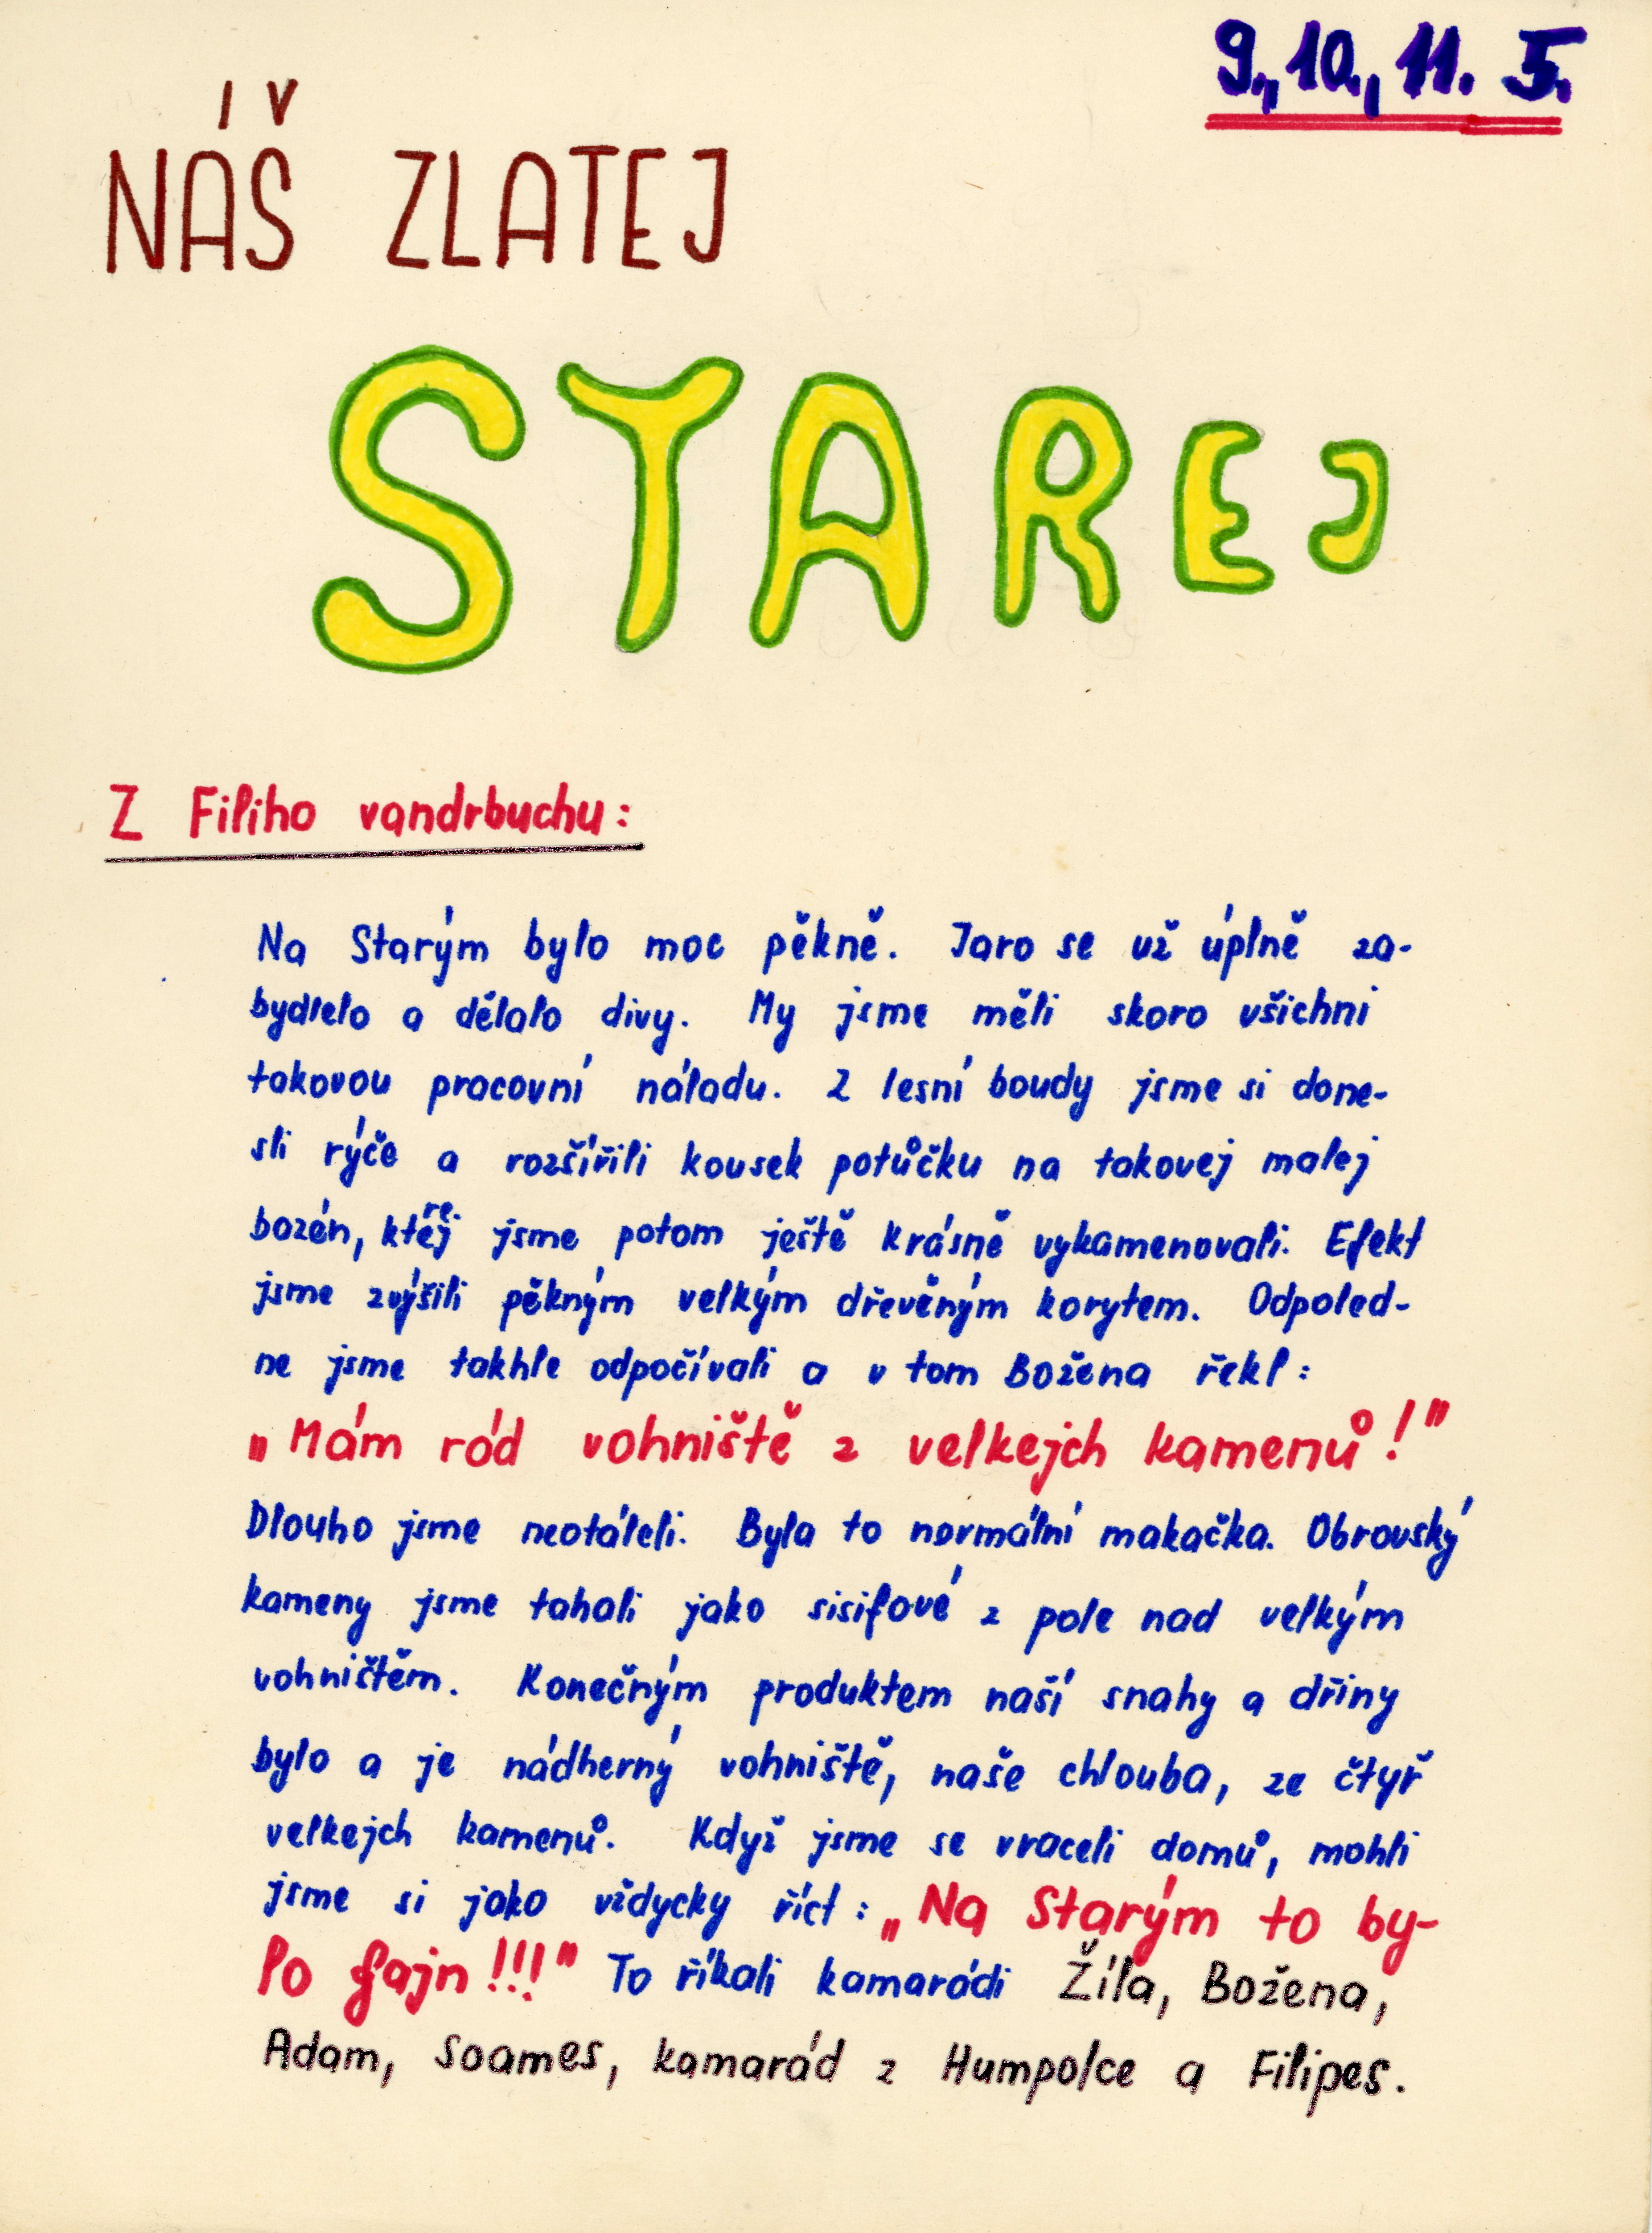 9., 10., 11. 5.
NÁŠ ZLATEJ
STAREJ
Z Filiho vandrbuchu:
Na Starým bylo moc pěkně. Jaro se už úplně za-
bydlelo a dělalo divy. My jsme měli skoro všichni
takovou pracovní náladu. Z lesní boudy jsme si done-
sli rýče a rozšířili kousek potůčku na takovej malej
bazén, kterej jsme potom ještě krásně vykamenovali. Efekt
jsme zvýšili pěkným velkým dřevěným korytem. Odpoled-
ne jsme takhle odpočívali a v tom Božena řekl:
„Mám rád vohniště z velkejch kamenů!"
Dlouho jsme neotáleli. Byla to normální makačka. Obrovský
kameny jsme tahali jako sisifové z pole nad velkým
vohništěm. Konečným produktem naší snahy a dřiny
bylo a je nádherný vohniště, naše chlouba, ze čtyř
velkejch kamenů. Když jsme se vraceli domů, mohli
jsme si jako vždycky říct: „Na Starým to by-
lo fajn!!!" To říkali kamarádi Žíla, Božena,
Adam, Soames, kamarád z Humpolce a Filipes.